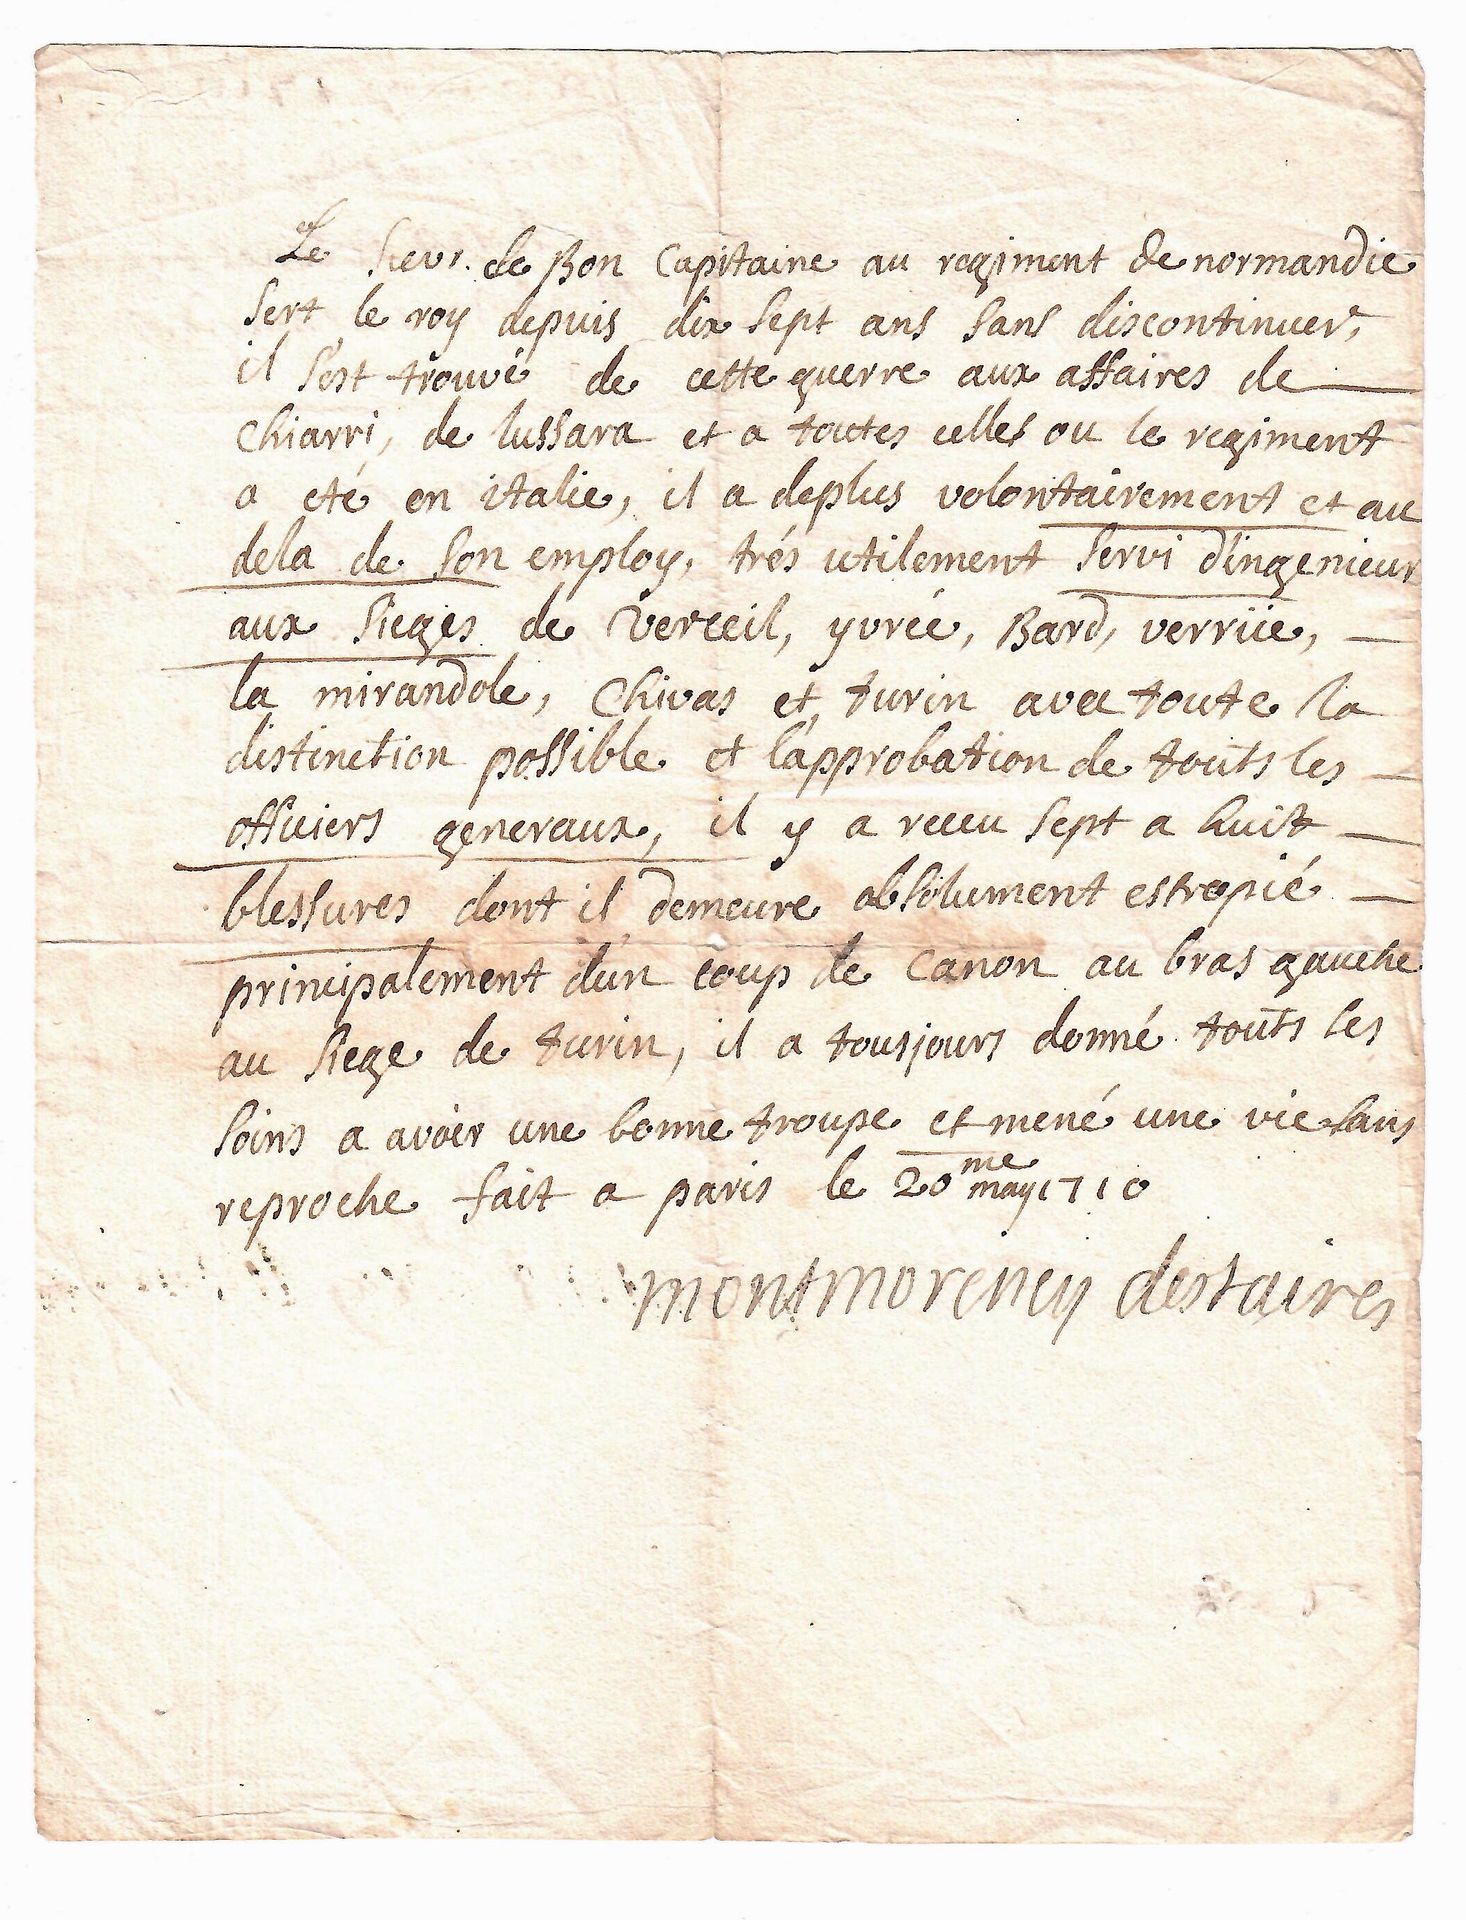 Le sieur de Bon Capitaine au regiment de normandie
sert le roy depuis dix sept ans sans discontinuer,
il s'est trouvé de cette guerre aux affaires de
Chiarri, de lussara et a toutes celles ou le regiment
a eté en italie, il a deplus volontairement et au
dela de son employ, trés utilement servi d'ingenieur
aux sieges de verceil, yvrée, Bard, verrüe,
la mirandole, Chivas et turin avec toute la
distinction possible et l'approbation de touts les
officiers generaux, il y a receu sept a huit
blessures dont il demeure absolument estropié
principalement d'un coup de canon au bras gauche
au siege de turin, il a tousjours donné touts les
soins a avoir une bonne troupe et mené une vie sans
reproche fait a paris le 20me may 1710
montmorency destaires